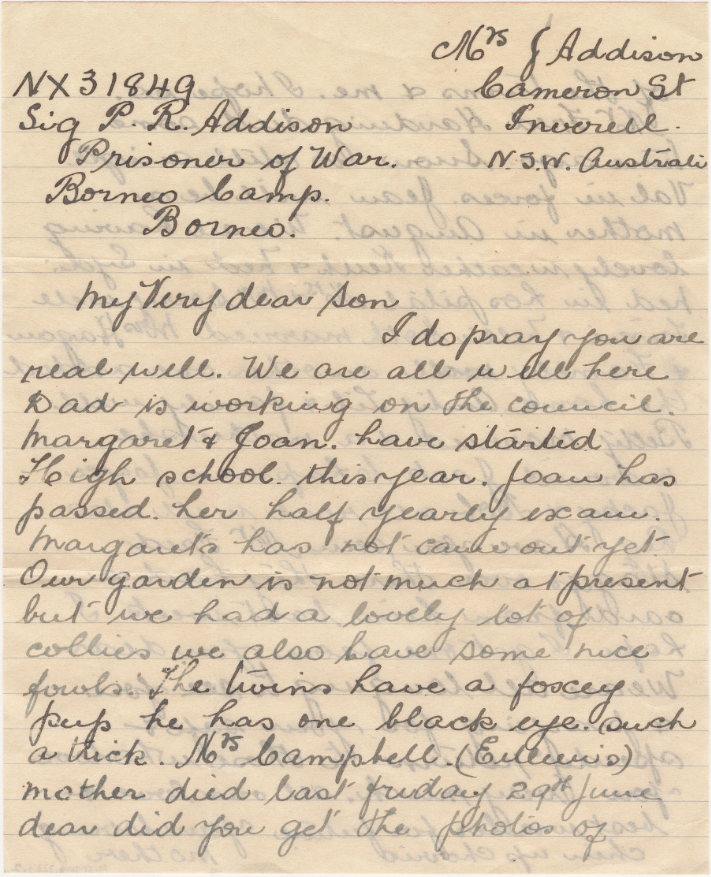 Mrs J Addison
Cameron St
Inverell.
N.S.W. Australi
NX31849
Sig P. R. Addison
Prisoner of War.
Borneo Camp.
Borneo.
My Very dear Son
I do pray you are
real well. We are all well here
Dad is working on the council.
Margaret & Joan. have started
High school. this year. Joan has
passed. her half yearly exam.
Margarets has not came out yet
Our garden is not much at present
but we had a lovely lot of
collies we also have some nice
fowls. The twins have a foxey
pup he has one black eye. such
a trick. Mrs Campbell. (Eileens)
mother died last friday 29th June,
dear did you get the photos of